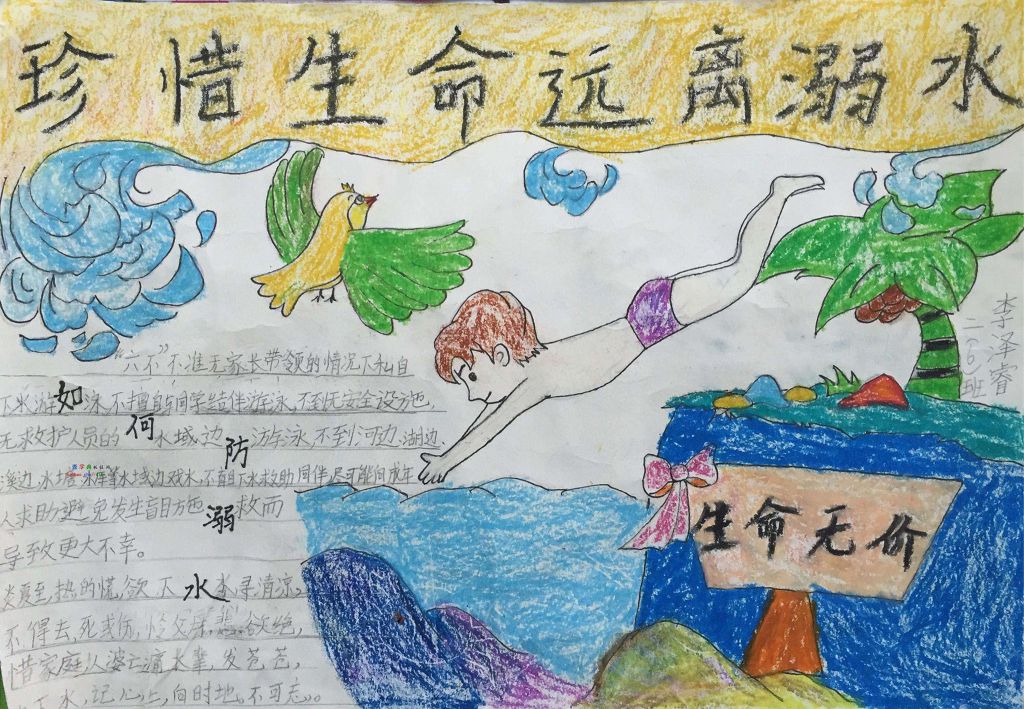 珍惜生命远离溺水
“六不”不准无家长带领的情况下私自
下水游泳,不擅自与同学结伴游泳,不到无安全设施
无救护人员的水域边游泳,不到河边、湖边、
溪边、水塘、水库等水域边戏水,不盲目下水救助同伴尽可能向成年
人求助避免发生盲目方施救而
导致更大不幸。
炎夏至,热的慌,欲下水寻清凉,
不得去,死或伤,怜父母,悲欲绝,
惜家庭人婆亡道长辈,发苍苍,
下水,记心上,向时地,不可忘。
如何防溺水
生命无价
李泽睿
二(6)班